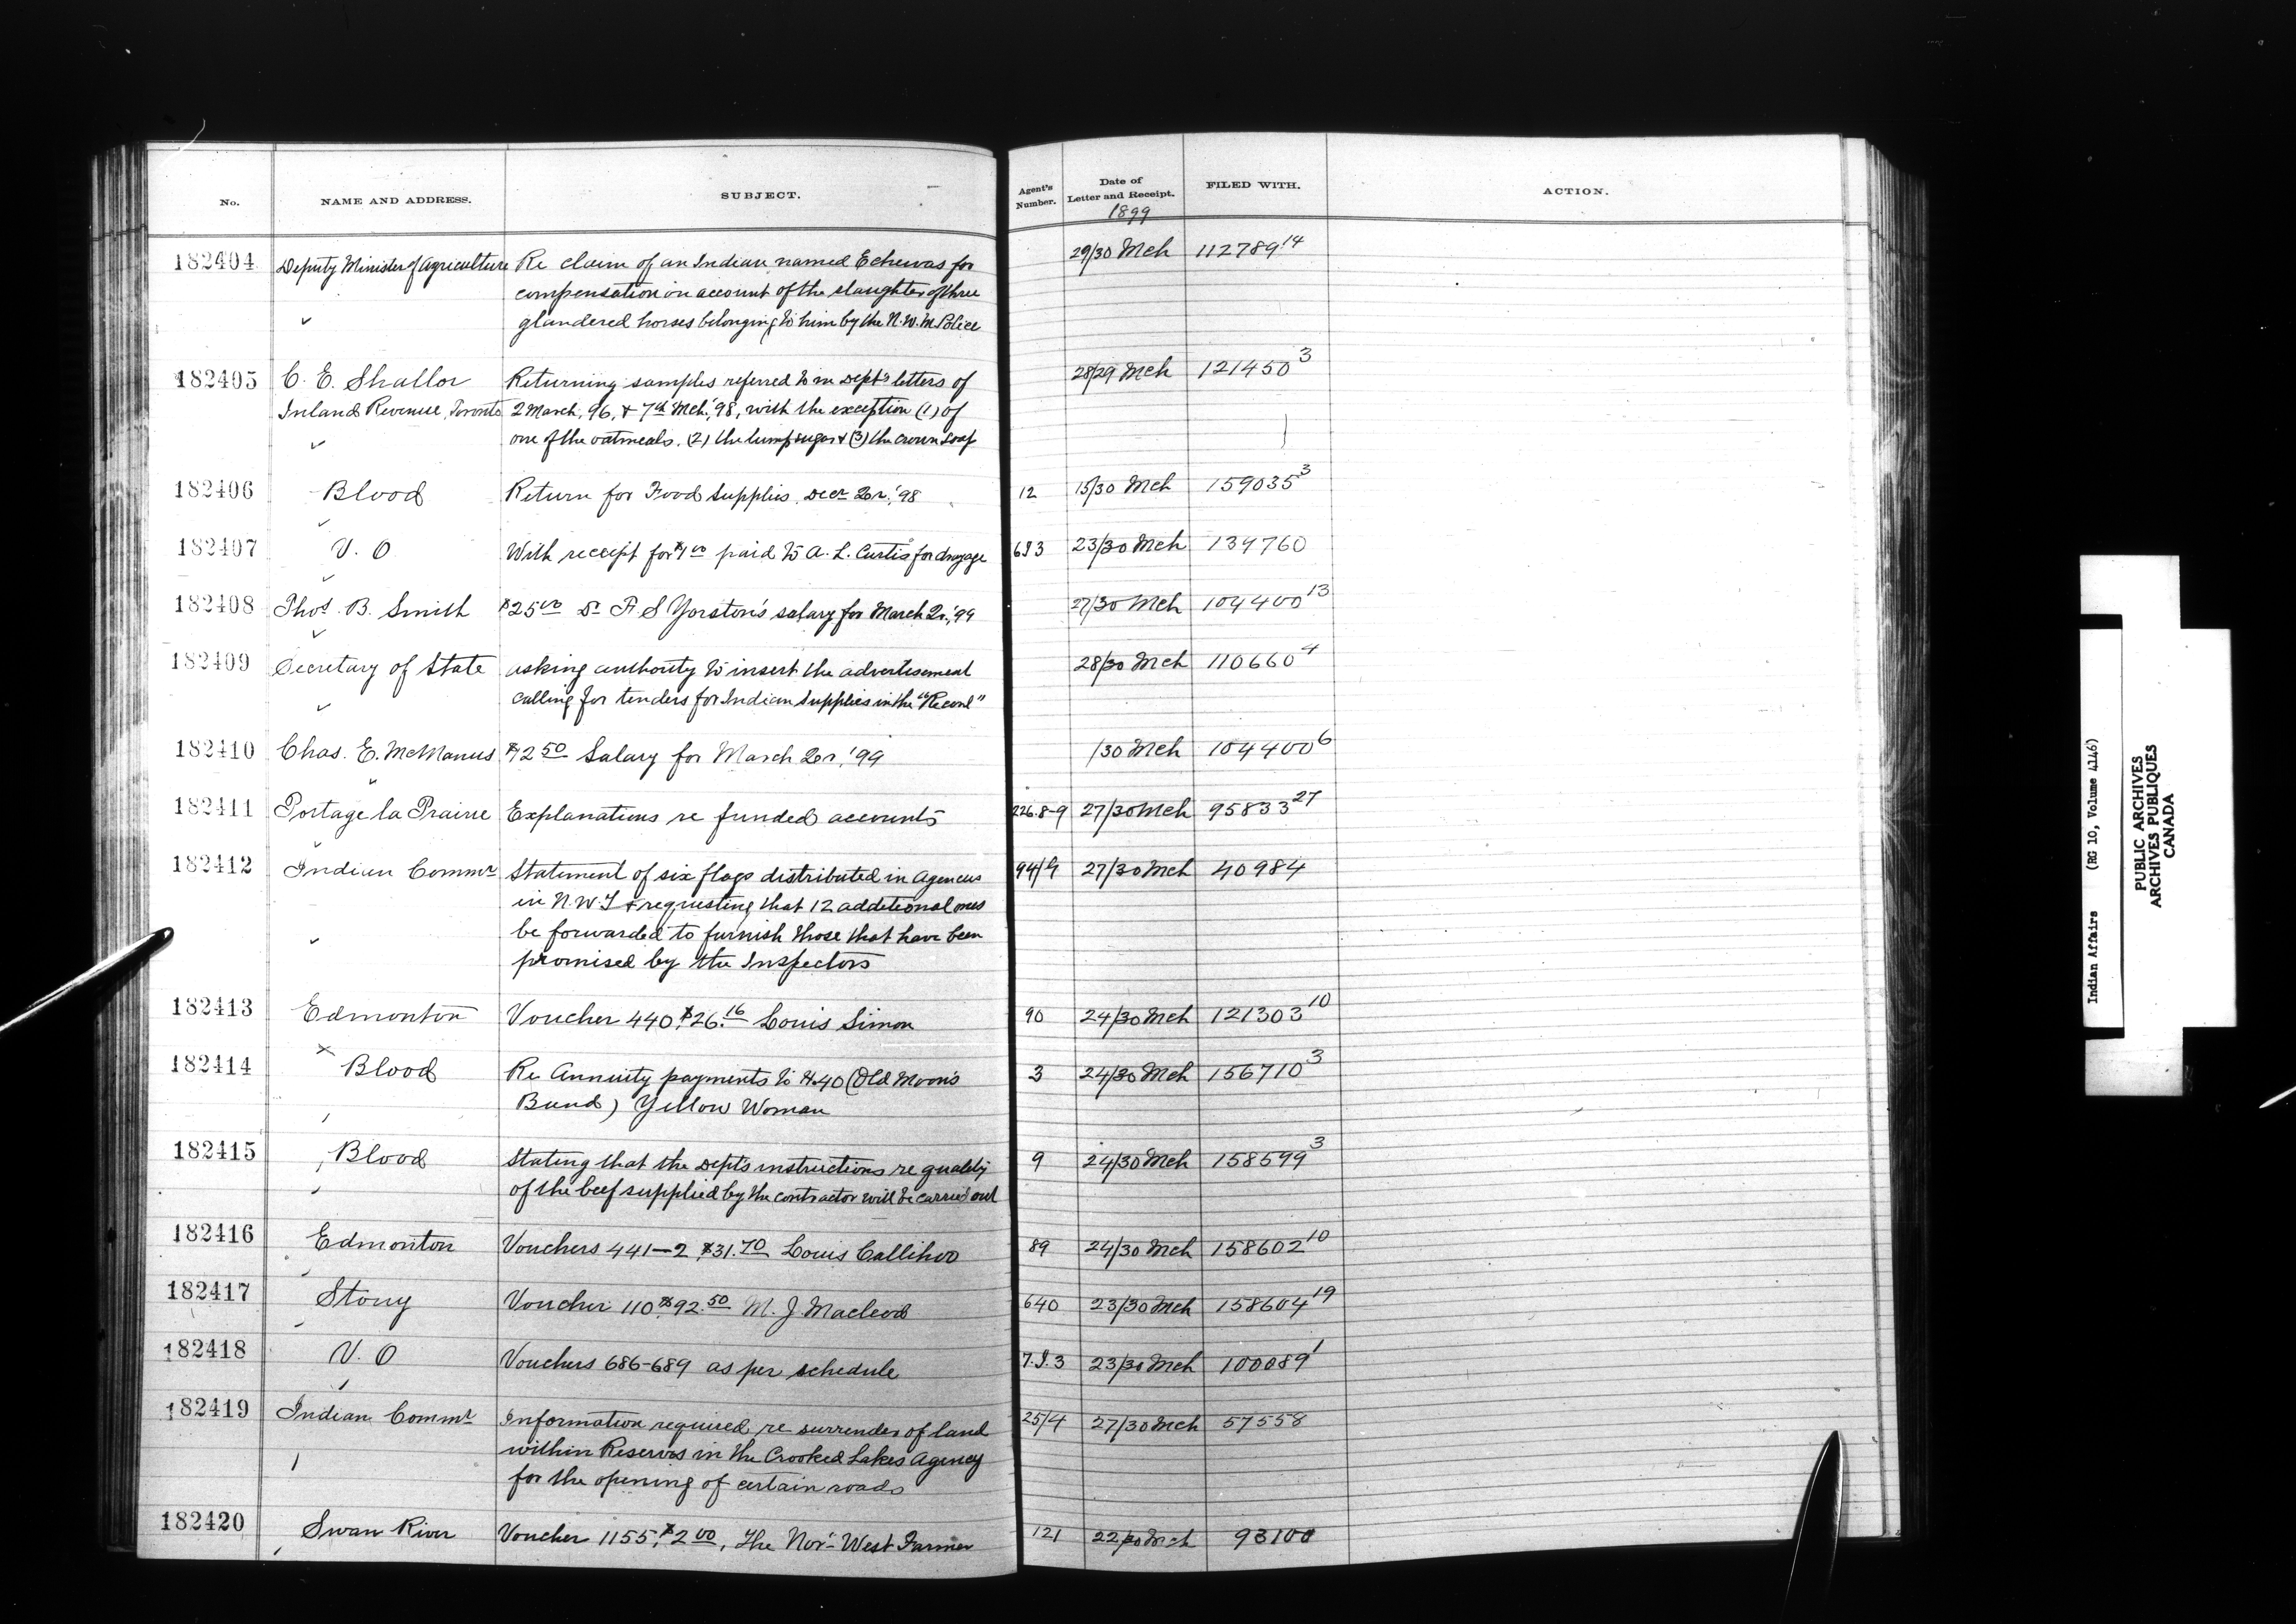 No. NAME AND ADDRESS. SUBJECT. Agent's Number. Date of Letter and Receipt. FILED WITH. ACTION.
1899
182404 Deputy Minister of Agriculture Re claim of an Indian named Echewas for 29/30 Mch 112789.14
compensation on account of the slaughter of three
glandered horses belonging to him by the N.W.M. Police
182405 C. E. Shallor Returning samples referred to in Dept's letters of 28/29 Mch 121450 3
Inland Revenue, Toronto 2 March, 96, & 7th Mch. '98, with the exception (1) of
one of the oatmeals. (2) the lump sugar & (3) the crown soap
182406 Blood Return for Food Supplies, Decr Qr. '98 12 15/30 Mch 159035 3
182407 V. O With receipt for $1 00 paid to A. L. Curtis for drayage 6J3 23/30 Mch 139760
182408 Thos. B. Smith $25 00 Dr F S Yorston's salary for March Qr. '99 27/30 Mch 104400 13
182409 Secretary of State asking authority to insert the advertisement 28/30 Mch 110660 4
calling for tenders for Indian Supplies in the "Record"
182410 Chas. E. McManus $12 50 Salary for March Qr. '99 /30 Mch 104400 6
182411 Portage la Prairie Explanations re funded accounts 226.8-9 27/30 Mch 95833 27
182412 Indian Commr Statement of six flags distributed in Agencies 94/G 27/30 Mch 40984
in N.W.T & requesting that 12 additional ones
be forwarded to furnish those that have been
promised by the Inspectors
182413 Edmonton Voucher 440, $26.16 Louis Simon 90 24/30 Mch 121303 10
182414 Blood Re Annuity payments to No. 40 (Old Moon's 3 24/30 Mch 156710 3
Band) Yellow Woman
182415 Blood Stating that the Dept's instructions re quality 9 24/30 Mch 158599 3
of the beef supplied by the contractor will be carried out
182416 Edmonton Vouchers 441-2 $31.70 Louis Callihoo 89 24/30 Mch 158602 10
182417 Stony Voucher 110 $92.50 M. J. Macleod 640 23/30 Mch 158604 19
182418 V. O Vouchers 686-689 as per schedule 7.J.3 23/30 Mch 100089 1
182419 Indian Commr Information required re surrender of land 25/4 27/30 Mch 57558
within Reserves in the Crooked Lakes Agency
for the opening of certain roads
182420 Swan River Voucher 1155, $2 00, The Nor'-West Farmer 121 22/30 Mch 93100
Indian Affairs (RG 10, Volume 4146)
PUBLIC ARCHIVES
ARCHIVES PUBLIQUES
CANADA